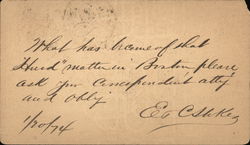 What has become of that
Hurd" matter in Boston please
ask your correspondent atty
and oblig
1/20/74